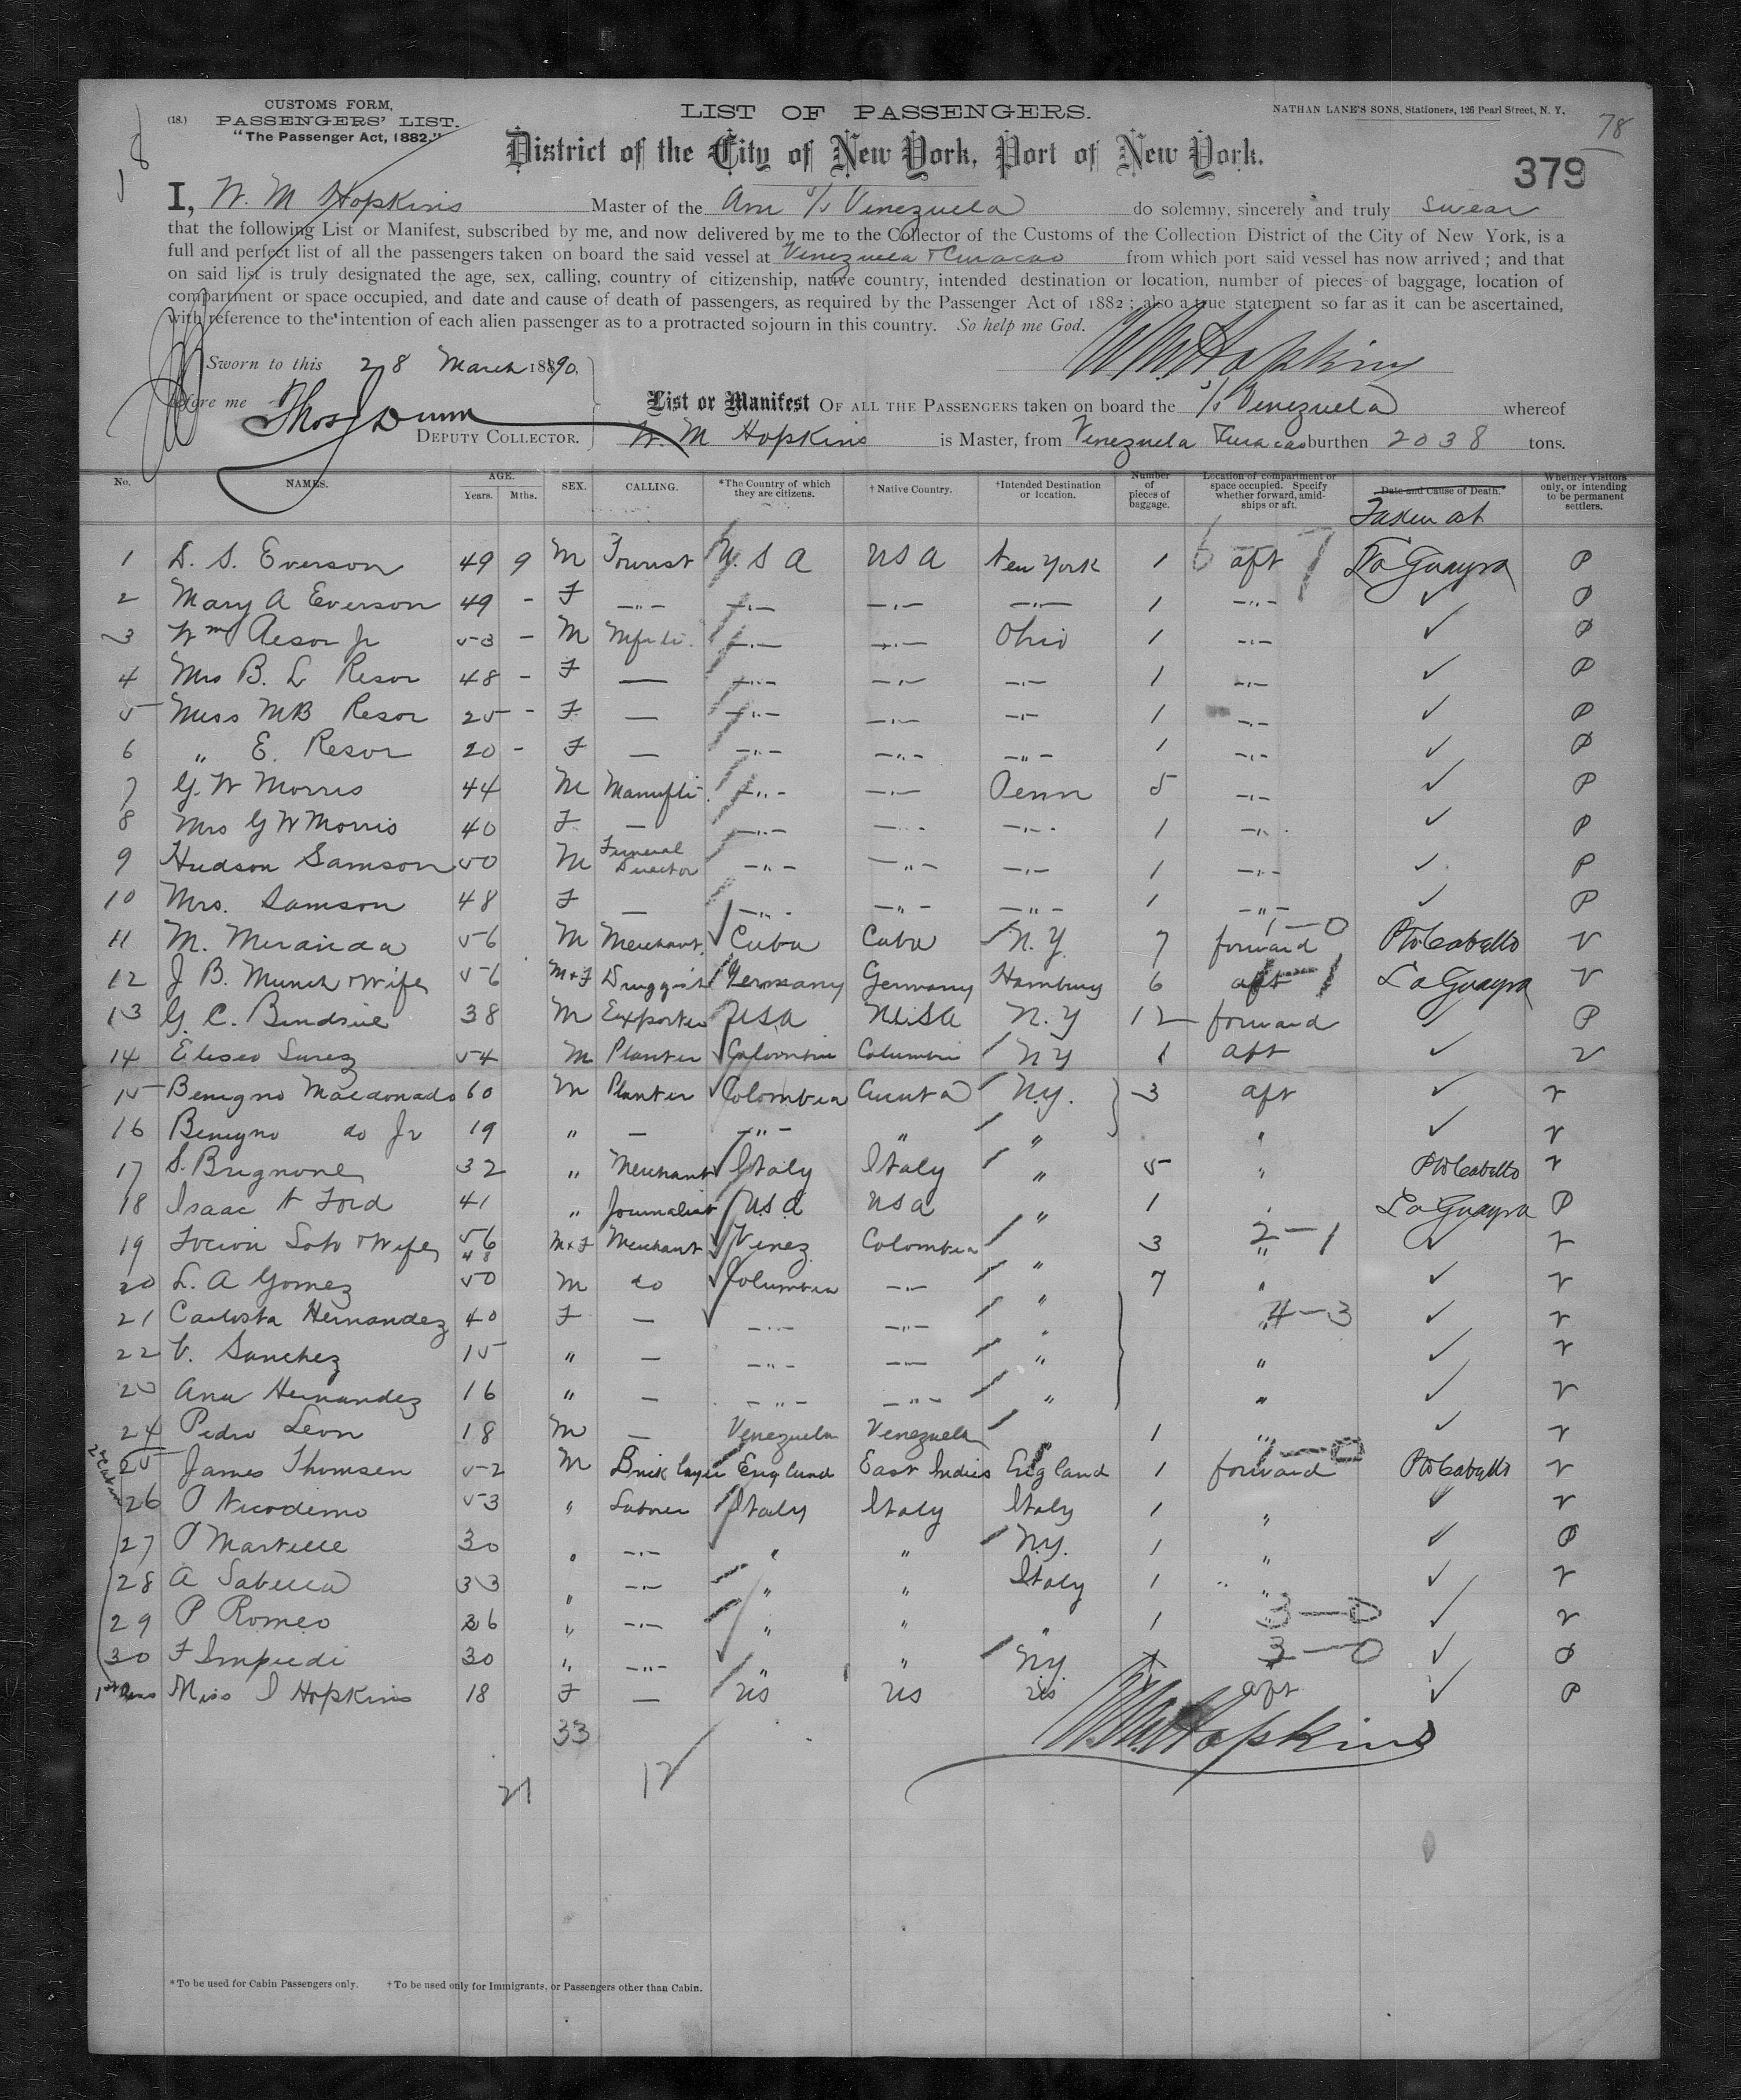 (18.) CUSTOMS FORM, LIST OF PASSENGERS. NATHAN LANE'S SONS, Stationers, 126 Pearl Street, N. Y. 78
PASSENGERS' LIST.
"The Passenger Act, 1882."
District of the City of New York, Port of New York.
379
I, W. M Hopkins Master of the Am S/S Venezuela do solemny, sincerely and truly swear
that the following List or Manifest, subscribed by me, and now delivered by me to the Collector of the Customs of the Collection District of the City of New York, is a
full and perfect list of all the passengers taken on board the said vessel at Venezuela & Curacao from which port said vessel has now arrived; and that
on said list is truly designated the age, sex, calling, country of citizenship, native country, intended destination or location, number of pieces of baggage, location of
compartment or space occupied, and date and cause of death of passengers, as required by the Passenger Act of 1882; also a true statement so far as it can be ascertained,
with reference to the intention of each alien passenger as to a protracted sojourn in this country. So help me God.
Sworn to this 28 March 1890, W M Hopkins
before me Thos J Dunn
DEPUTY COLLECTOR.
List or Manifest OF ALL THE PASSENGERS taken on board the S/S Venezuela whereof
W. M Hopkins is Master, from Venezuela & Curacao burthen 2038 tons.
No. NAMES. AGE. Years. Mths. SEX. CALLING. *The Country of which they are citizens. † Native Country. †Intended Destination or location. Number of pieces of baggage. Location of compartment or space occupied. Specify whether forward, amidships or aft. Date and Cause of Death. Whether Visitors only, or intending to be permanent settlers.
Taken at
1 D. S. Everson 49 9 M Tourist U. S A U S A New York 1 6 aft 7 La Guayra P
2 Mary A Everson 49 - F -"- -"- -"- -"- 1 -"- ✓ P
3 Wm Resor Jr 53 - M -"- -"- Ohio 1 -"- ✓ P
4 Mrs B. L Resor 48 - F — -"- -"- -"- 1 -"- ✓ P
5 Miss MB Resor 25 - F — -"- -"- -"- 1 -"- ✓ P
6 " E. Resor 20 - F — -"- -"- -"- 1 -"- ✓ P
7 G. W Morris 44 M -"- -"- Penn 5 -"- ✓ P
8 Mrs G W Morris 40 F — -"- -"- -"- 1 -"- ✓ P
9 Hudson Samson 50 M Funeral Director -"- -"- -"- 1 -"- ✓ P
10 Mrs. Samson 48 F — -"- -"- -"- 1 -"- ✓ P
11 M. Miranda 56 M Merchant Cuba Cuba N. Y. 7 forward 1-0 Pto Cabello V
12 J B. Munch & Wife 56 M+F Druggist Germany Germany Hamburg 6 aft 1 La Guayra V
13 G. C. 38 M Exporter U S A U S A N. Y 12 forward ✓ P
14 Eliseo 54 M Planter Colombia Columbia N Y 1 aft ✓ V
15 Benigno Maldonado 60 M Planter Colombia Cucuta N.Y. 3 aft ✓ V
16 Benigno do Jr 19 " — -"- " " " ✓ V
17 S. Brignone 32 " Merchant Italy Italy " 5 " Pto Cabello V
18 Isaac N Ford 41 " Journalist U S A U S A " 1 " La Guayra P
19 Focion Soto & Wife 56 48 M+F Merchant Venez Colombia " 3 " 2-1 ✓ V
20 L. A Gomez 50 M do Columbia -"- " 7 " ✓ V
21 Carlosta Hernandez 40 F — -"- -"- " " 4-3 ✓ V
22 V. Sanchez 15 " — -"- -"- " " ✓ V
23 Ana Hernandez 16 " — -"- -"- " " ✓ V
24 Pedro Leon 18 M — Venezuela Venezuela " 1 " ✓ V
2nd Cabin
25 James Thomsen 52 M Brick layer England East Indies England 1 forward 1-0 Pto Cabello V
26 P Nicodemo 53 " Laborer Italy Italy Italy 1 " ✓ V
27 P Martelle 30 " -"- " " N.Y. 1 " ✓ P
28 A Sabella 33 " -"- " " Italy 1 " ✓ V
29 P Romeo 26 " -"- " " " 1 3-0 ✓ V
30 F 30 " -"- " " N.Y. 1 3-0 ✓ P
Miss I Hopkins 18 F — US US US aft ✓ P
33
W M Hopkins
21 12
*To be used for Cabin Passengers only. †To be used only for Immigrants, or Passengers other than Cabin.